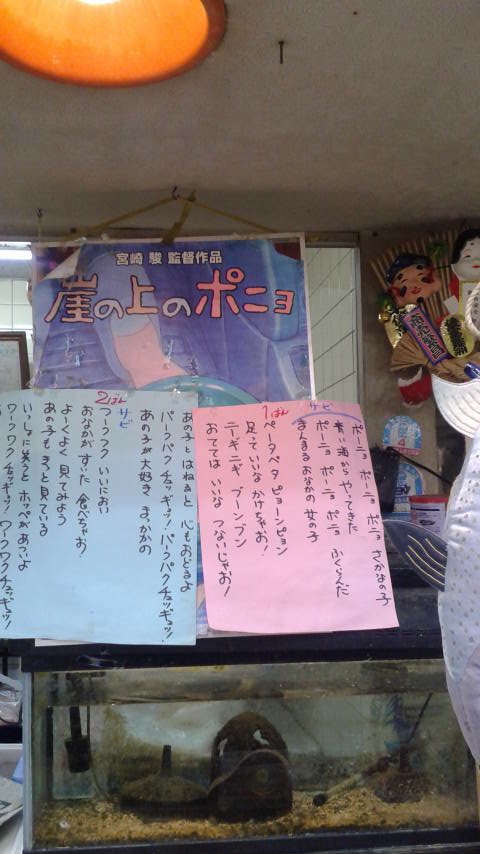 宮崎 駿 監督作品
崖の上のポニョ
サビ
ポーニョ ポーニョ ポニョ さかなの子
青い海から やってきた
ポーニョ ポーニョ ポニョ ふくらんだ
まんまるおなかの 女の子
1ばん
ペータペタ ピョーンピョン
足っていいな かけちゃお!
ニーギニギ ブーンブン
おててはいいな つないじゃお!
あの子と はねると 心もおどるよ
パークパクチュッギュッ! パークパクチュッギュッ!
あの子が大好き まっかかの
2ばん
サビ
フークフク いいにおい
おなかがすいた 食べちゃお!
よーくよく 見てみよう
あの子も きっと見ている
いっしょに笑うと ホッペがあついよ
ワークワクチュッギュッ! ワークワクチュッギュッ!